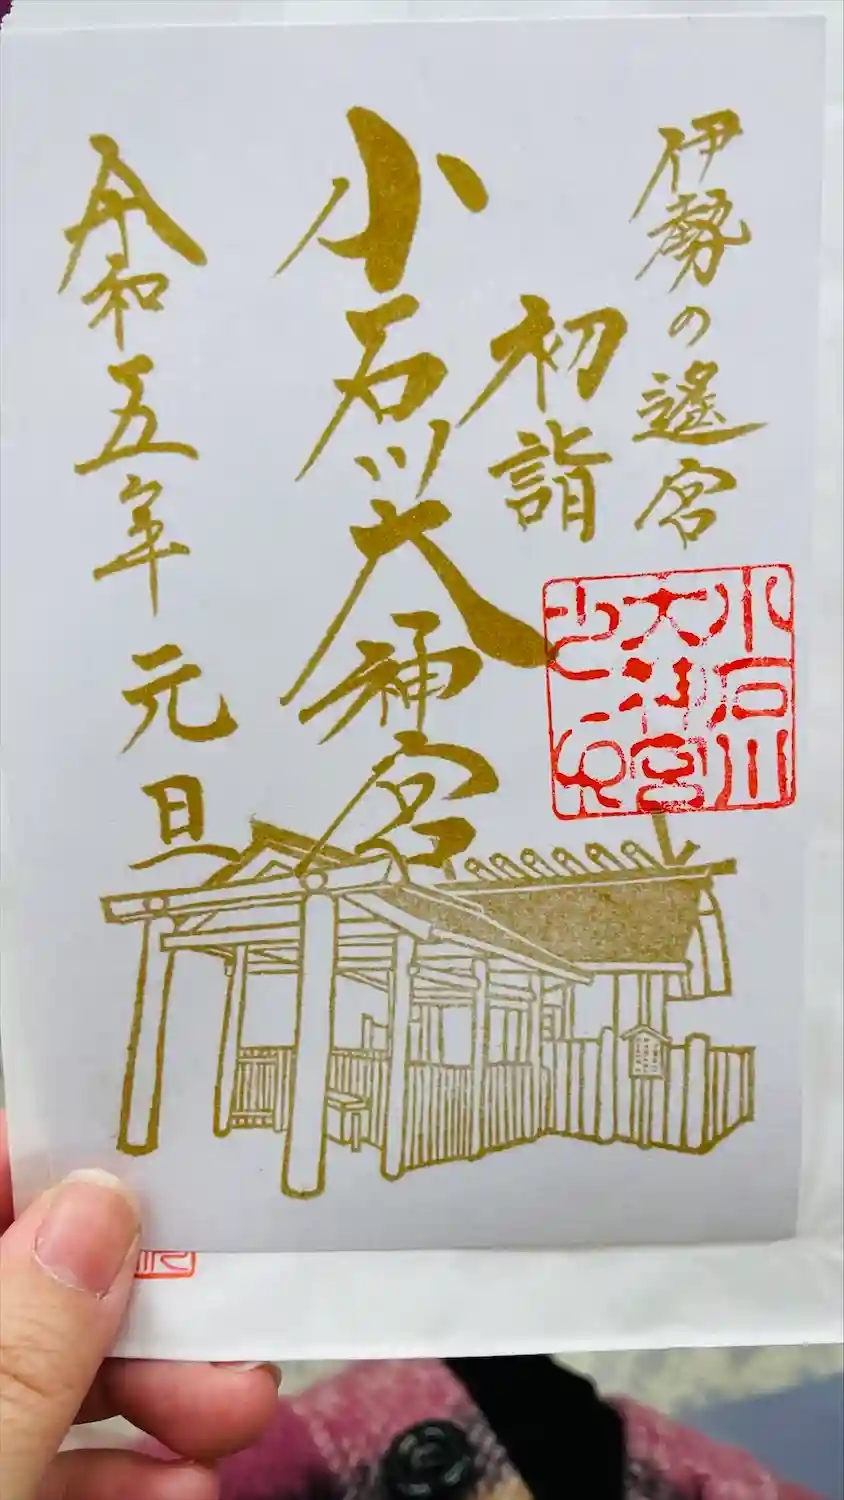 伊勢の遙宮
初詣
小石川大神宮
令和五年元旦
小石川
大神宮
之印